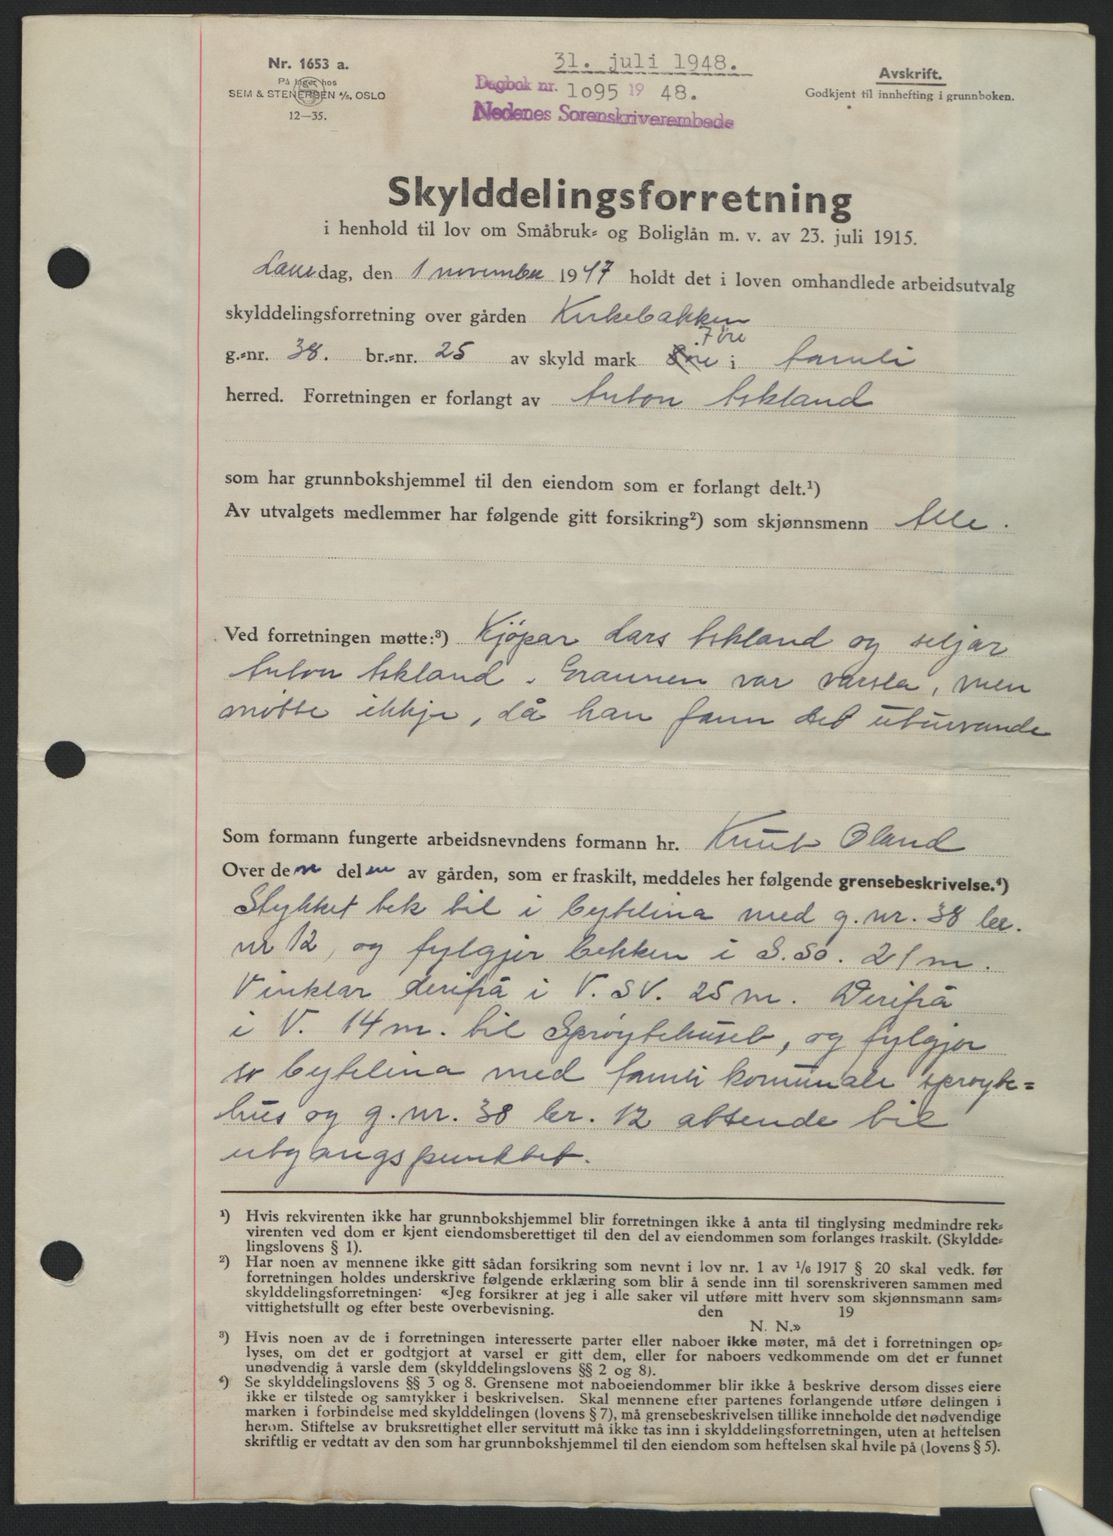 Nr. 1653 a.
På lager hos
SEM & STENERSEN A/S, OSLO
12—35.
31. juli 1948.
Dagbok nr. 1o95 19 48.
Nedenes Sorenskriverembede
Avskrift.
Godkjent til innhefting i grunnboken.
Skylddelingsforretning
i henhold til lov om Småbruk- og Boliglån m. v. av 23. juli 1915.
Laurdag, den 1 november 1947 holdt det i loven omhandlede arbeidsutvalg
skylddelingsforretning over gården Kirkebakken
7 øre
g.-nr. 38. br.-nr. 25 av skyld mark i Åmli
herred. Forretningen er forlangt av Anton Askland
som har grunnbokshjemmel til den eiendom som er forlangt delt.¹)
Av utvalgets medlemmer har følgende gitt forsikring²) som skjønnsmenn Alle.
Ved forretningen møtte:³) Kjöpar Lars Askland og seljar
Anton Askland. Grannen var varsla, men
møtte ikkje, då han fann det uturvande
Som formann fungerte arbeidsnevndens formann hr. Knut Oland
Over den delen av gården, som er fraskilt, meddeles her følgende grensebeskrivelse.⁴)
Stykket tek til i bytelina med g.nr. 38 br.
nr 12, og fylgjer bekken i S.SO. 21 m.
Vinklar derifrå i V.SV. 25 m. Derifrå
i V. 14 m. til Sprøytehuset, og fylgjer
so bytelina med Åmli komunale sprøyte=
hus og g.nr. 38 br. 12 attende til
utgangspunktet.
¹) Hvis rekvirenten ikke har grunnbokshjemmel blir forretningen ikke å anta til tinglysing medmindre rek-
virenten ved dom er kjent eiendomsberettiget til den del av eiendommen som forlanges fraskilt. (Skyldde-
lingslovens § 1).
²) Har noen av mennene ikke gitt sådan forsikring som nevnt i lov nr. 1 av 1/6 1917 § 20 skal vedk. før
forretningen holdes underskrive følgende erklæring som blir å sende inn til sorenskriveren sammen med
skylddelingsforretningen: «Jeg forsikrer at jeg i alle saker vil utføre mitt hverv som skjønnsmann sam-
vittighetsfullt og efter beste overbevisning. den 19
N. N.»
³) Hvis noen av de i forretningen interesserte parter eller naboer ikke møter, må det i forretningen op-
lyses, om det er godtgjort at varsel er gitt dem, eller for naboers vedkommende om det er funnet
unødvendig å varsle dem (skylddelingslovens §§ 2 og 8).
⁴) Se skylddelingslovens §§ 3 og 8. Grensene mot naboeiendommer blir ikke å beskrive dersom disses eiere
ikke er tilstede og samtykker i beskrivelsen. Skal mennene efter partenes forlangende utføre delingen i
marken i forbindelse med skylddelingen (lovens § 7), må grensebeskrivelsen tillike inneholde det nødvendige
herom. Stiftelse av bruksrettighet eller servitutt må ikke tas inn i skylddelingsforretningen, uten at heftelsen
skriftlig er vedtatt av den som har grunnbokshjemmel til den eiendom som heftelsen skal hvile på (lovens § 5).